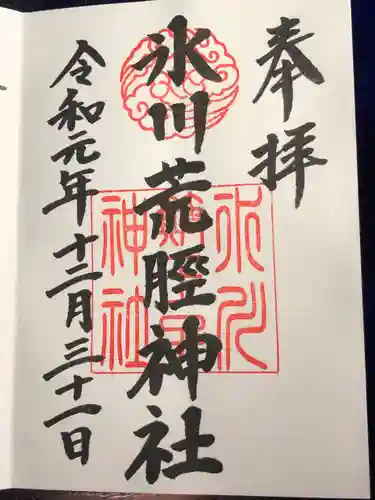 奉拝
氷川荒脛神社
令和元年十二月三十一日